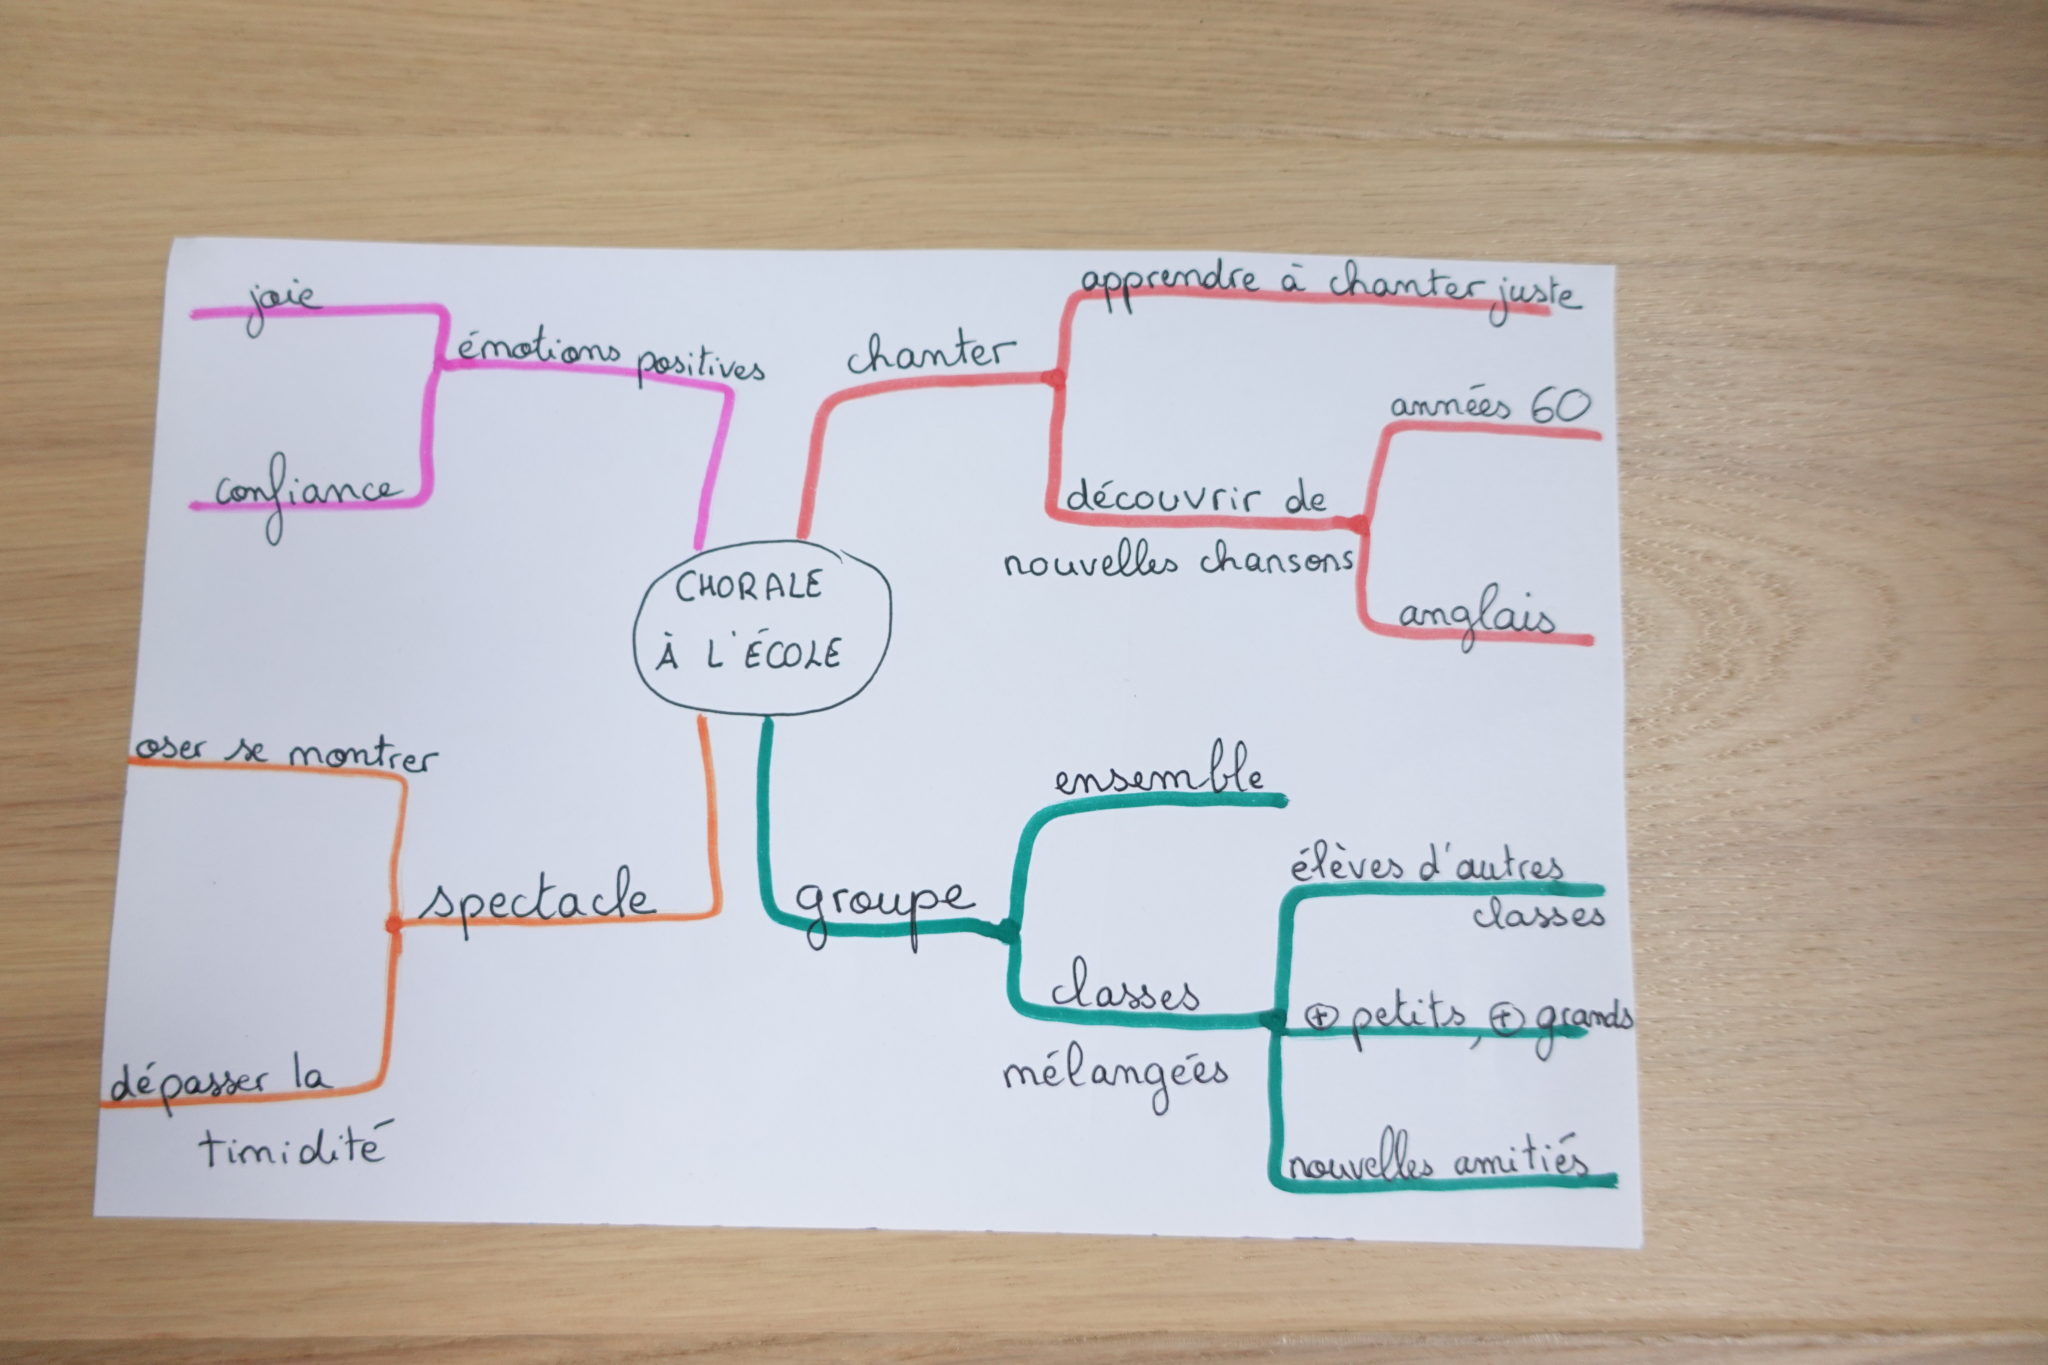 joie
émotions positives
confiance
chanter
apprendre à chanter juste
découvrir de
nouvelles chansons
années 60
anglais
CHORALE
À L'ÉCOLE
oser se montrer
spectacle
dépasser la
timidité
groupe
ensemble
classes
mélangées
élèves d'autres
classes
⊕ petits, ⊕ grands
nouvelles amitiés